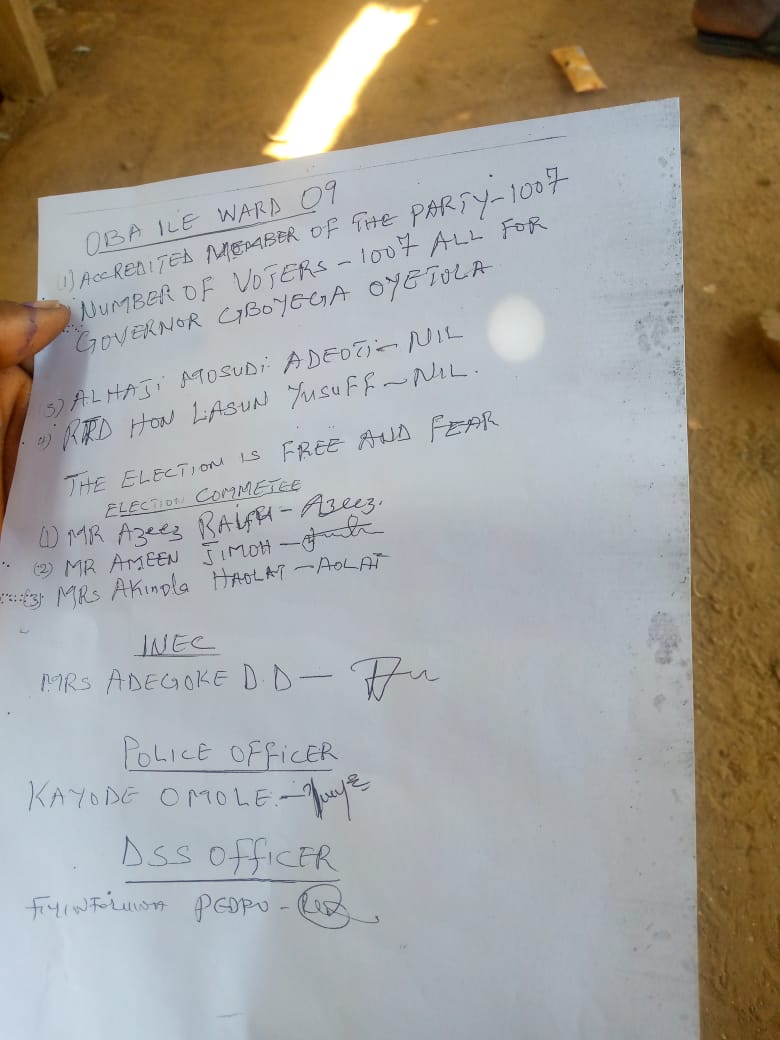 OBA ILE WARD 09
(1) ACCREDITED MEMBER OF THE PARTY - 1007
NUMBER OF VOTERS - 1007 ALL FOR
GOVERNOR GBOYEGA OYETOLA
3) ALHAJi MOSUDi ADEOTi - NIL
4) RRD HON LASUN YUSUFF - NIL.
THE ELECTION IS FREE AND FEAR
ELECTION COMMETEE
(1) MR Azeez RAIFU - Azeez.
(2) MR AMEEN JIMOH -
(3) MRs AKinola HAOLAT - AOLAT
INEC
MRS ADEGOKE D.D -
POLICE OFFiCER
KAYODE OMOLE. -
DSS OffICER
PEDRO -